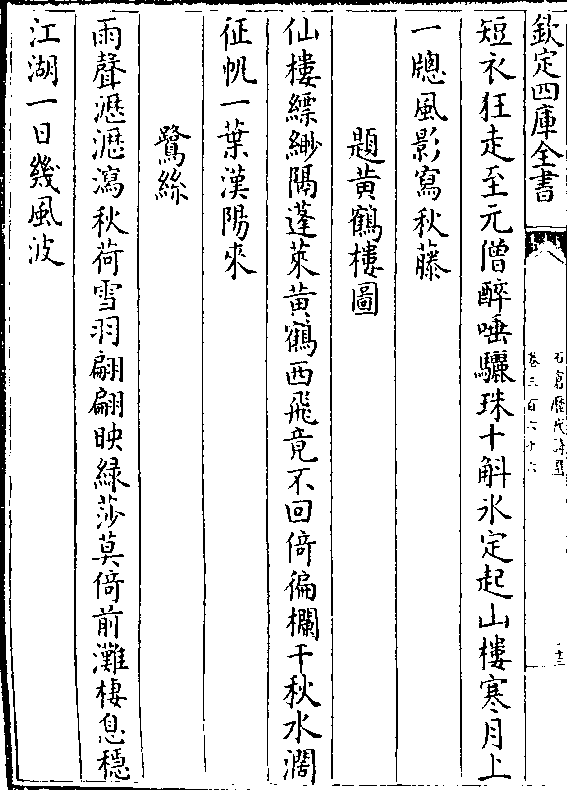 欽定四庫全書
石倉歴代詩選
卷三百六十六
十三
短衣狂走至元僧醉唾驪珠十斛氷定起山樓寒月上
一牎風影寫秋藤
題黄鶴樓圖
仙樓縹緲隔蓬萊黄鶴西飛竟不回倚徧欄干秋水濶
征帆一葉漢陽來
鷺絲
雨聲瀝瀝瀉秋荷雪羽翩翩映緑莎莫倚前灘棲息穩
江湖一日幾風波